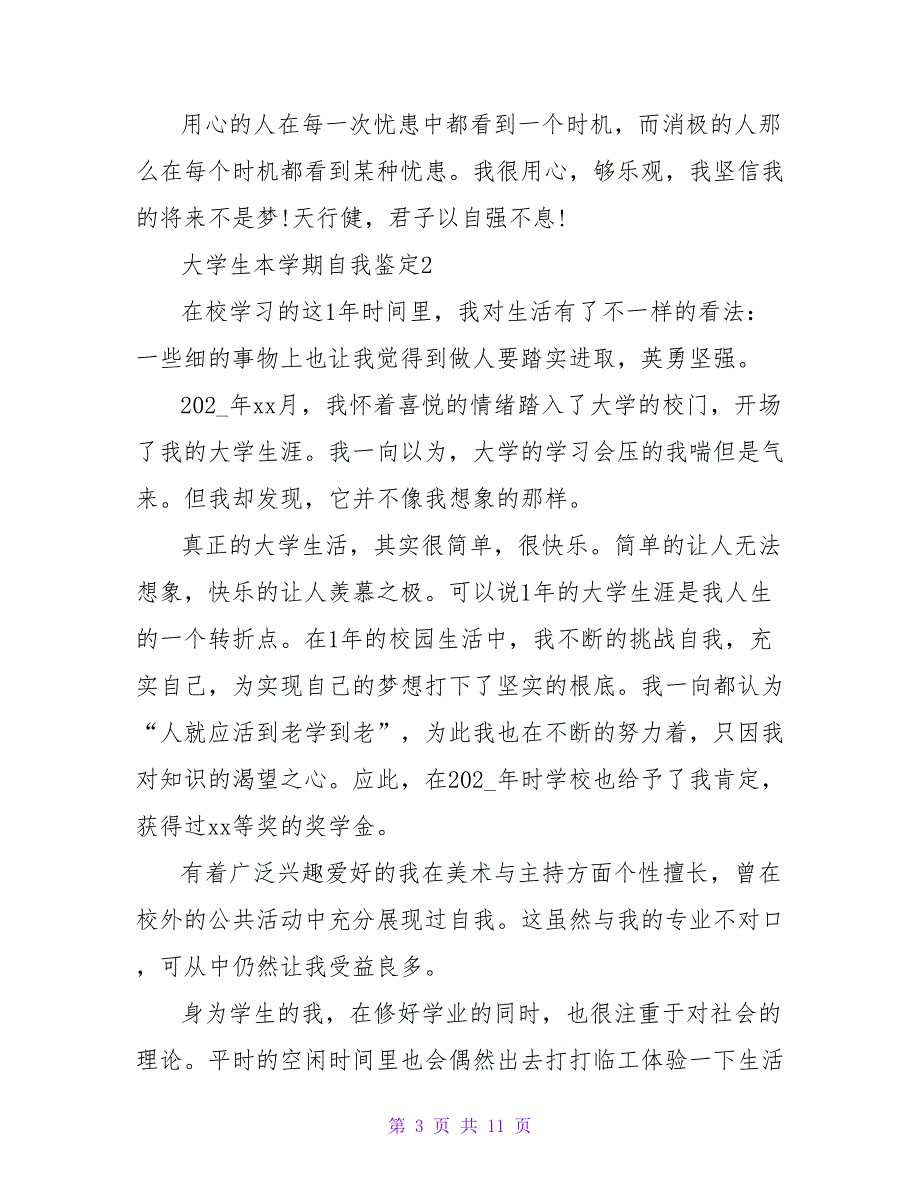 用心的人在每一次忧患中都看到一个时机，而消极的人那
么在每个时机都看到某种忧患。我很用心，够乐观，我坚信我
的将来不是梦!天行健，君子以自强不息!
大学生本学期自我鉴定2
在校学习的这1年时间里，我对生活有了不一样的看法：
一些细的事物上也让我觉得到做人要踏实进取，英勇坚强。
202_年xx月，我怀着喜悦的情绪踏入了大学的校门，开场
了我的大学生涯。我一向以为，大学的学习会压的我喘但是气
来。但我却发现，它并不像我想象的那样。
真正的大学生活，其实很简单，很快乐。简单的让人无法
想象，快乐的让人羡慕之极。可以说1年的大学生涯是我人生
的一个转折点。在1年的校园生活中，我不断的挑战自我，充
实自己，为实现自己的梦想打下了坚实的根底。我一向都认为
“人就应活到老学到老”，为此我也在不断的努力着，只因我
对知识的渴望之心。应此，在202_年时学校也给予了我肯定，
获得过xx等奖的奖学金。
有着广泛兴趣爱好的我在美术与主持方面个性擅长，曾在
校外的公共活动中充分展现过自我。这虽然与我的专业不对口
，可从中仍然让我受益良多。
身为学生的我，在修好学业的同时，也很注重于对社会的
理论。平时的空闲时间里也会偶然出去打打临工体验一下生活
第 3 页 共 11 页